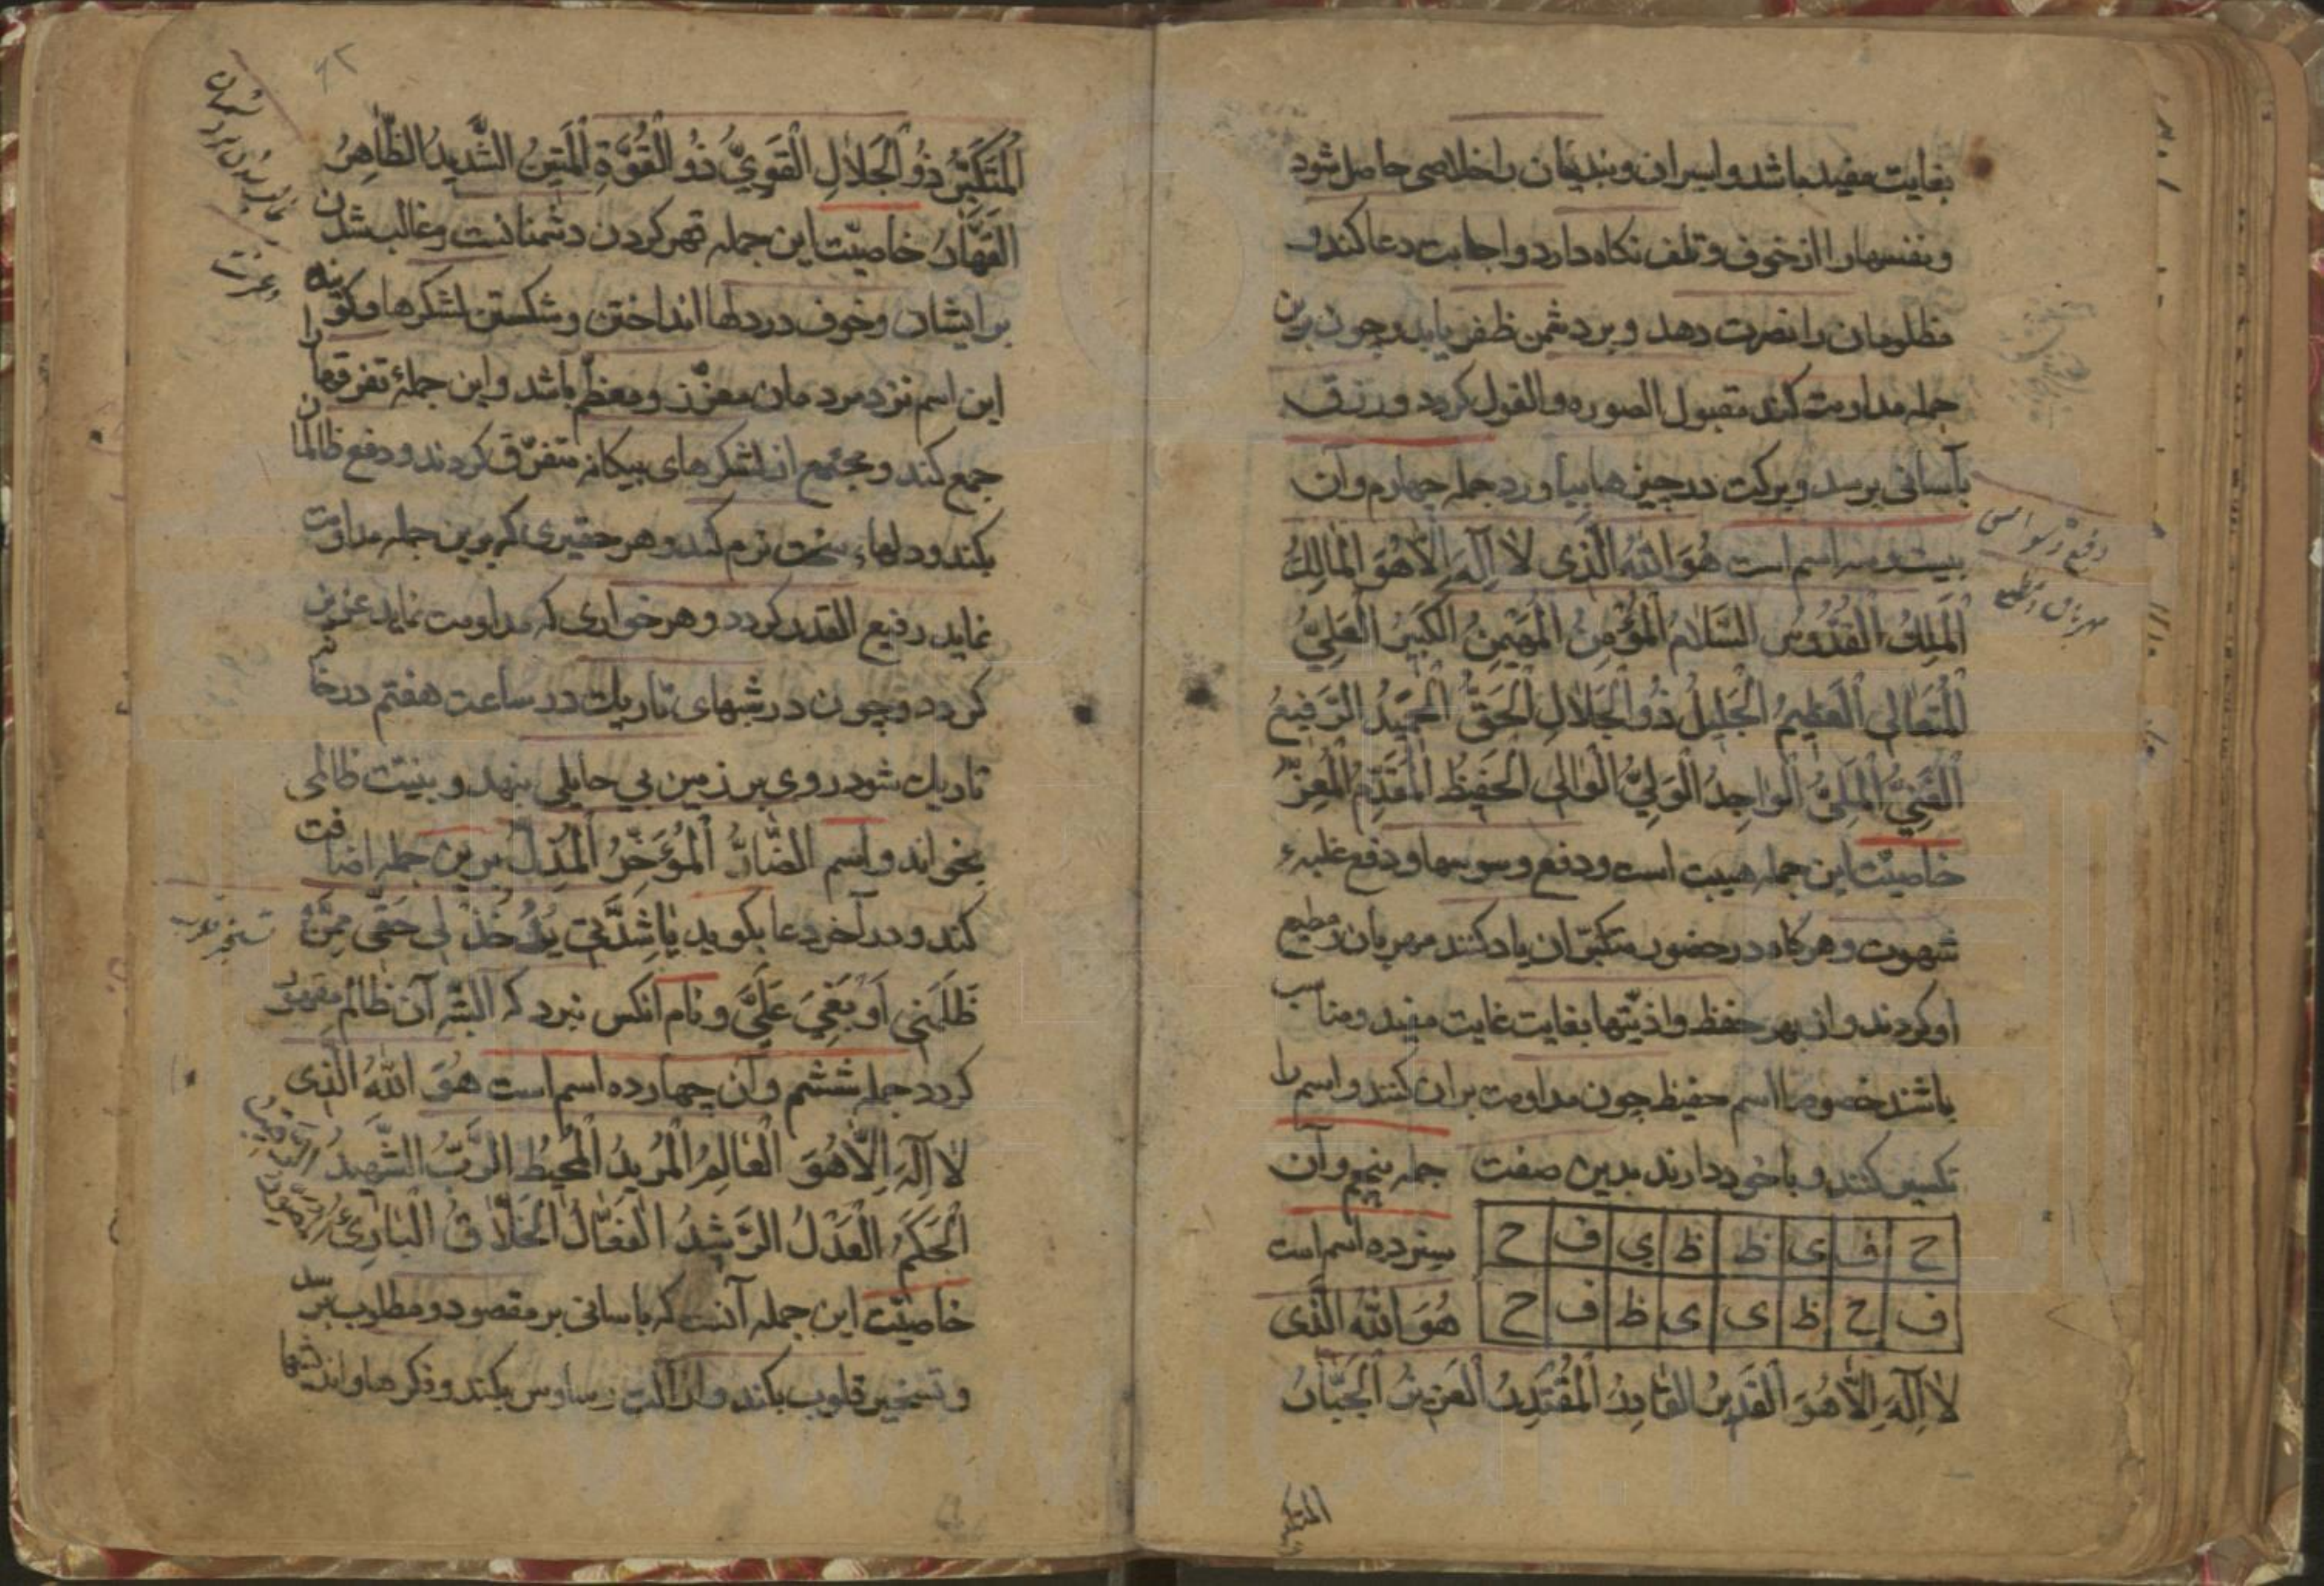 بغایت مفید باشد و اسیران و بندیان را خلاصی حاصل شود
و نفسها را از خوف و تلف نکاه دارد و اجابت دعا کند و
مظلومان را نصرت دهد و بر دشمن ظفر یابد و چون برین
جمله مداومت کند مقبول الصوره والقول کردد و رزق
بآسانی برسد و برکت در چیزها بیاورد جمله چهارم و آن
بیست و سه اسم است هُوَ اللّٰهُ الَّذی لا اِلٰهَ اِلّا هُوَ الْمالِكُ
الْمَلِكُ الْقُدُّوسُ السَّلامُ الْمُؤْمِنُ الْمُهَیْمِنُ الْکَبیرُ الْعَلِيُّ
الْمُتَعالی الْعَظیمُ الْجَلیلُ ذُو الْجَلالِ الْحَقُّ الْمَجیدُ الرَّفیعُ
الْغَنِيُّ الْمَلِيُّ الْواجِدُ الْوَلِيُّ الْوالی الْحَفیظُ الْمُقَدِّمُ الْمُعِزُّ
خاصیّت این جمله هیبت است و دفع وسوسها و دفع غلبهء
شهوت و هرکاه در حضور متکبّران یاد کنند مهربان و مطیع
او کردند و از بهر حفظ و اذیّتها بغایت غایت مفید و مناسب
باشند خصوصا اسم حفیظ چون مداومت بران کنند و اسم را
تکسیر کنند و با خود دارند بدین صفت جمله پنجم و آن
ح ف ی ظ ظ ی ف ح
سیزده اسم است
ف ح ظ ی ی ظ ف ح
هُوَ اللّٰهُ الَّذی
لا اِلٰهَ اِلّا هُوَ الْقَدیرُ الْقادِرُ الْمُقْتَدِرُ الْعَزیزُ الْجَبّارُ
المتکبر
دفع وسواس
مهربان و مطیع
۶۲
الْمُتَکَبِّرُ ذُو الْجَلالِ الْقَوِيُّ ذُو الْقُوَّةِ الْمَتینُ الشَّدیدُ الظّاهِرُ
الْقَهّارُ خاصیّت این جمله قهر کردن دشمنانست و غالب شدن
بر ایشان و خوف در دلها انداختن و شکستن لشکرها و کویند
این اسم نزد مردمان معزّز و معظّم باشد و این جملهٔ تفرقها را
جمع کند و مجتمع از لشکرهای بیکانه متفرّق کردند و دفع ظالمان
بکند و دلهاء سخت نرم کند و هر حقیری که برین جمله مداومت
نماید رفیع القدر کردد و هر خواری که مداومت نماید عزیز
کردد و چون در شبهای تاریك در ساعت هفتم در خانه
تاریك شود روی بر زمین بی حایلی بنهد و بنیّت ظالمی
بخواند و اسم الضّارُّ الْمُؤَخِّرُ الْمُذِلُّ برین جمله اضافت
کند و در آخر دعا بکوید یا شَدیدُ خُذْ لی حَقّی مِمَّنْ
ظَلَمَنی اَوْ بَغی عَلَيَّ و نام انکس ببرد که البتّه آن ظالم مقهور
کردد جمله ششم و آن چهارده اسم است هُوَ اللّٰهُ الَّذی
لا اِلٰهَ اِلّا هُوَ الْعالِمُ الْمُریدُ الْمُحیطُ الرَّبُّ الشَّهیدُ الرَّقیبُ
الْحَکَمُ الْعَدْلُ الرَّشیدُ الْفَعّالُ الْخَلّاقُ الْبارِئُ الْمُصَوِّرُ
خاصیّت این جمله آنست که باسانی بر مقصود و مطلوب برسد
و تسخیر قلوب بکند و ازالت وساوس بکند و فکرها و اندیشها
غالب شدن بر دشمنان
و عزت
تسخیر قلوب